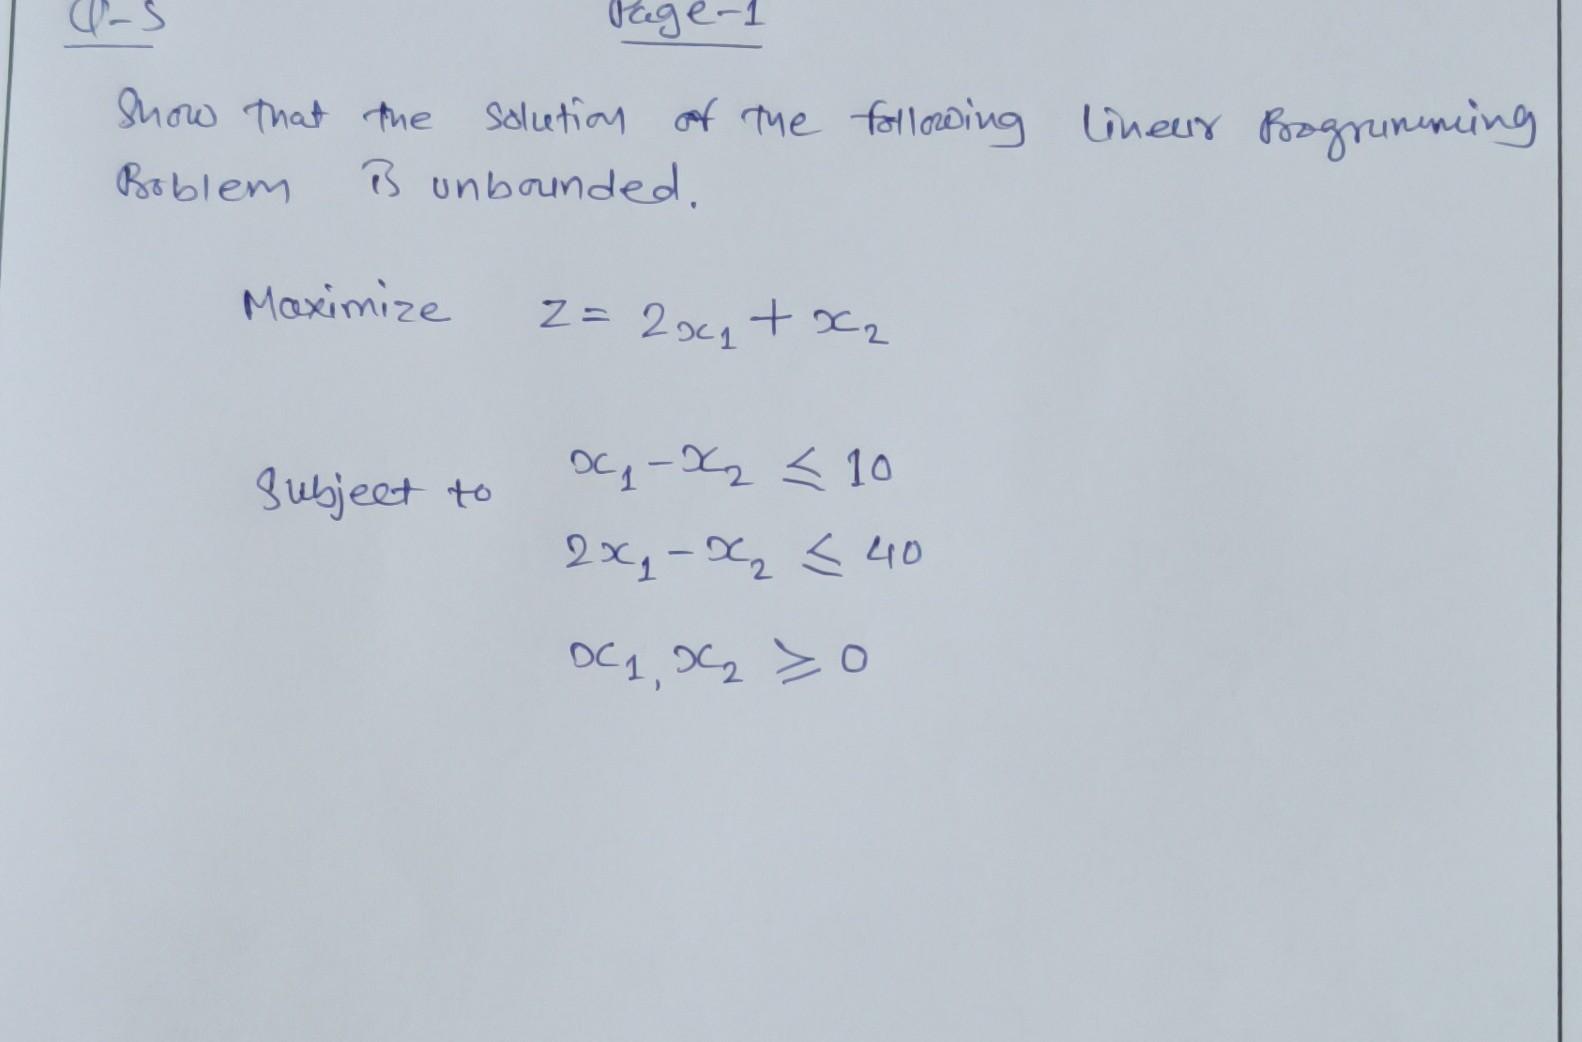 Q-5 Page-1
Show that the solution of the following Linear Programming
Problem is unbounded.
Maximize z = 2x₁ + x₂
Subject to x₁ - x₂ ≤ 10
2x₁ - x₂ ≤ 40
x₁, x₂ ≥ 0